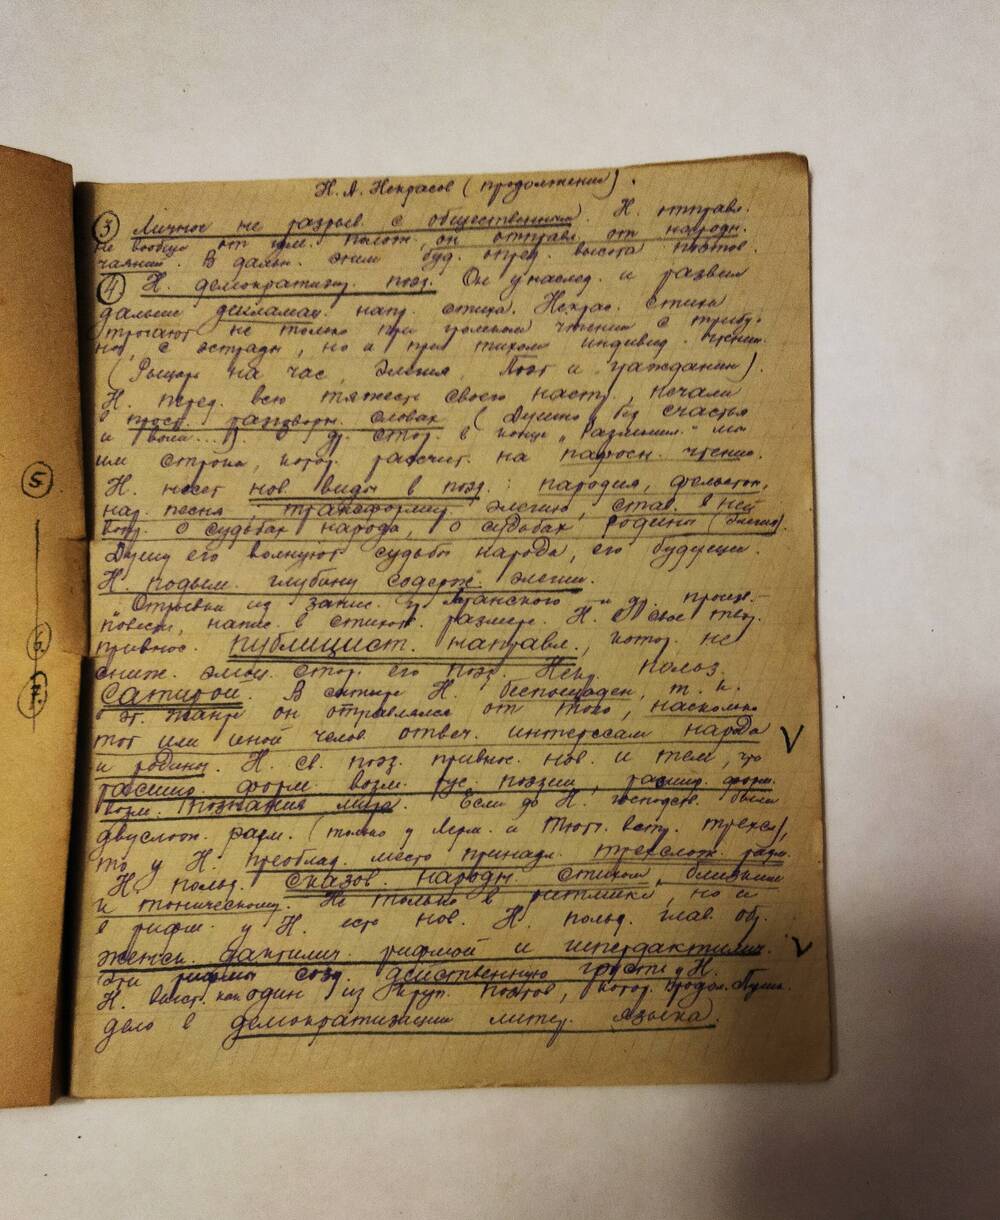 Н. А. Некрасов (продолжение).
③ Личное не разрыв. с общественным. Н. отправл.
не вообще от полож., он отправл. от народн.
чаяний. В дальн. этим буд. опред. высота поэтов.
④ Н. демократизир. поэз. Он унаслед. и развил
дальше декламац. напр. стиха. Некрас. стихи
трогают не только при громком чтении с трибу-
ны, с эстрады, но и при тихом индивид. чтении.
(Рыцарь на час, Элегия, Поэт и гражданин).
Н. перед. всю тяжесть своего настр., печали
в прост. разговорн. словах (Душно! без счастья
и воли...). С др. стор. в конце „Размышл." мы
им. строки, котор. рассчит. на пафосн. чтение.
Н. несет нов. виды в поэз.: пародия, фельетон,
нар. песня трансформир. элегию, став. в ней
вопр. о судьбах народа, о судьбах родины (Элегия).
Душу его волнуют судьбы народа, его будущее.
Н. подым. глубину содерж. элегии.
„Отрывки из запис. гр. Гаранского" и др. произв.-
повести, напис. в стихотв. размере. Н. в свое твор.
привнос. публицист. направл., котор. не
сниж. эмоц. стор. его поэз. Некр. польз.
сатирой. В сатире Н. беспощаден, т. к.
в эт. жанре он отправлялся от того, насколько
тот или иной челов. отвеч. интересам народа
и родины. Н. св. поэз. привнос. нов. и тем, что
расшир. форм. возм. рус. поэзии, расшир. форм.
возм. познания мира. Если до Н. господств. были
двуслож. разм. (только у Лерм. и Тютч. встр. трехсл.),
то у Н. преоблад. место принадл. трехслож. разм.
Н. польз. сказов. народн. стихом, близким
к тоническому. Не только в ритмике, но и
в рифм. у Н. есть нов. Н. польз. глав. обр.
женск. дактилич. рифмой и гипердактилич.
Эти рифмы созд. действенную грусть у Н.
Н. выст. как один из круп. поэтов, котор. продол. Пушк.
дело в демократизации литер. языка.
5
6
7